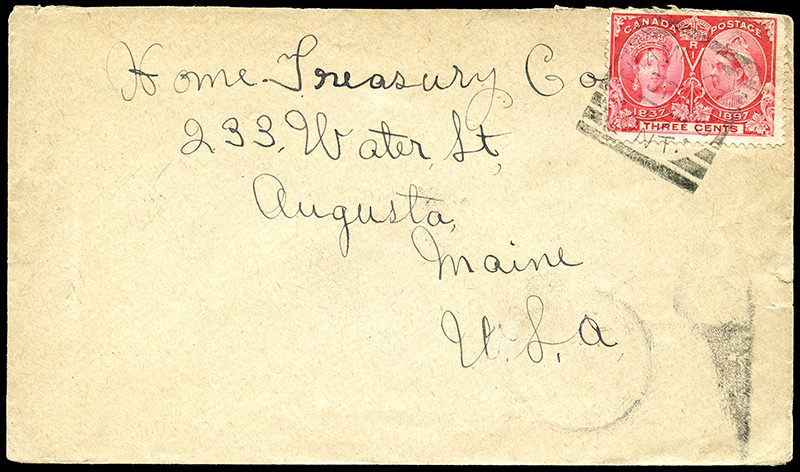 Home Treasury Co
233, Water, St,
Augusta,
Maine
U. S, A,
CANADA POSTAGE
V R I
1837 1897
THREE CENTS
N.T.